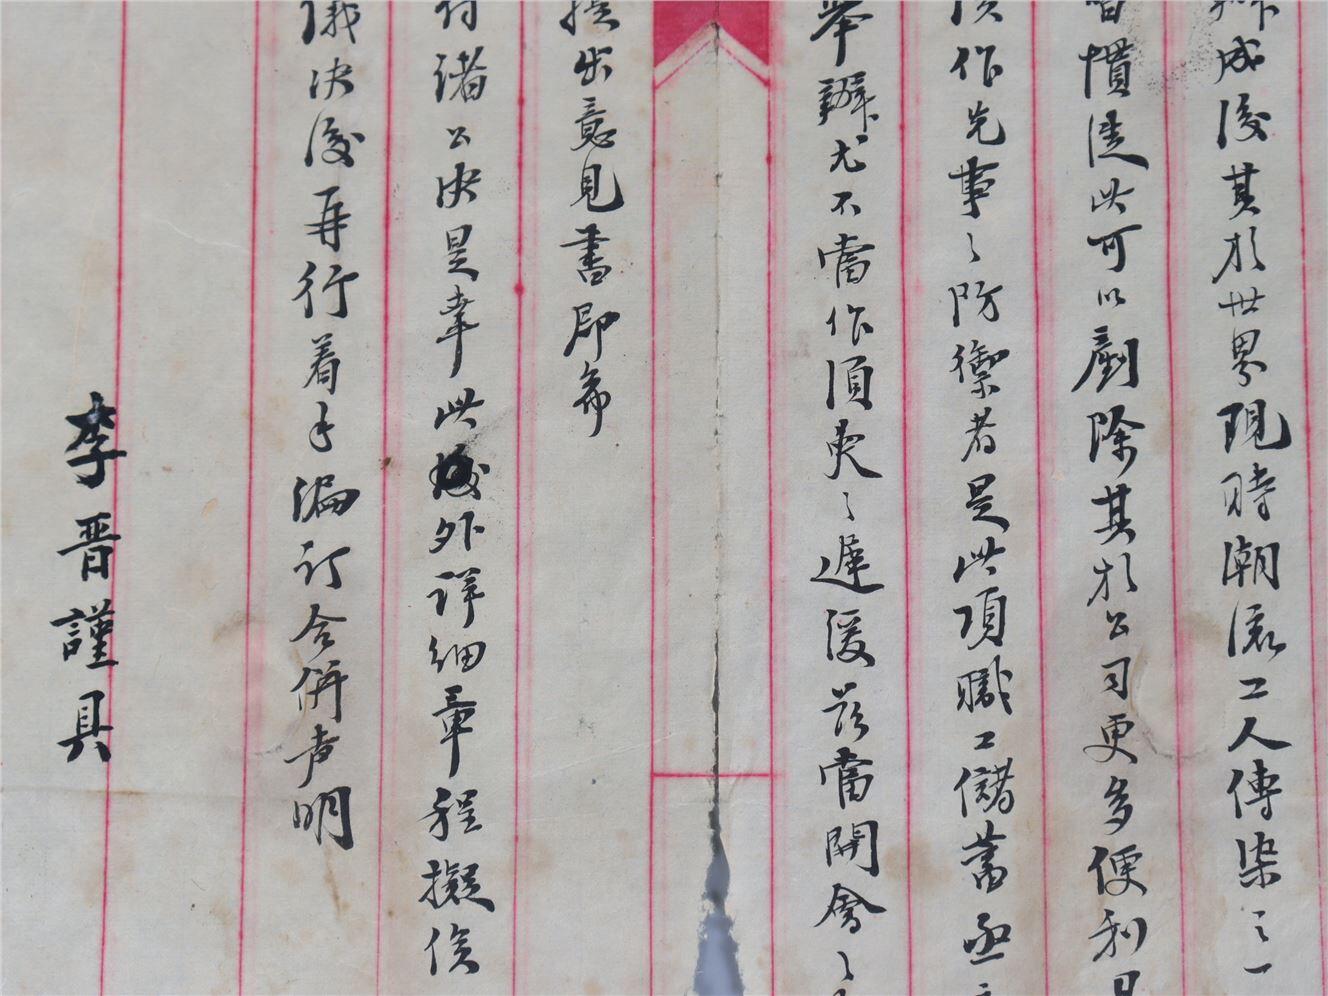 辦成後其於世界現時潮流工人傳染之一
習慣從此可以剷除其於公司更多便利且
須作先事之防禦者是此項職工儲蓄亟
舉辦尤不當作須臾之遲緩茲當開會之
提出意見書即希
付諸公決是幸此外詳細章程擬俟
議決後再行着手编订合併声明
李晋謹具